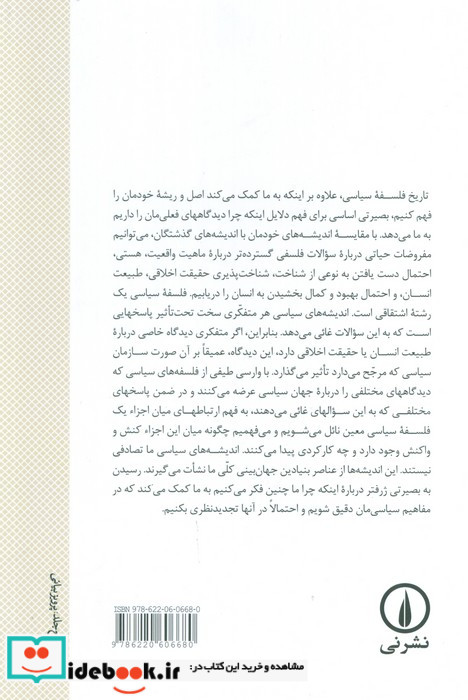 تاریخ فلسفهٔ سیاسی، علاوه بر اینکه به ما کمک می‌کند اصل و ریشهٔ خودمان را
فهم کنیم، بصیرتی اساسی برای فهم دلایل اینکه چرا دیدگاههای فعلی‌مان را داریم
به ما می‌دهد. با مقایسهٔ اندیشه‌های خودمان با اندیشه‌های گذشتگان، می‌توانیم
مفروضات حیاتی دربارهٔ سؤالات فلسفی گسترده‌تر دربارهٔ ماهیت واقعیت، هستی،
احتمال دست یافتن به نوعی از شناخت، شناخت‌پذیری حقیقت اخلاقی، طبیعت
انسان، و احتمال بهبود و کمال بخشیدن به انسان را دریابیم. فلسفهٔ سیاسی یک
رشتهٔ اشتقاقی است. اندیشه‌های سیاسی هر متفکّری سخت تحت‌تأثیر پاسخهایی
است که به این سؤالات غائی می‌دهد. بنابراین، اگر متفکری دیدگاه خاصی دربارهٔ
طبیعت انسان یا حقیقت اخلاقی دارد، این دیدگاه، عمیقاً بر آن صورت سازمان
سیاسی که مرجّح می‌دارد تأثیر می‌گذارد. با وارسی طیفی از فلسفه‌های سیاسی که
دیدگاههای مختلفی را دربارهٔ جهان سیاسی عرضه می‌کنند و در ضمن پاسخهای
مختلفی که به این سؤالهای غائی می‌دهند، به فهم ارتباطهای میان اجزاء یک
فلسفهٔ سیاسی معین نائل می‌شویم و می‌فهمیم چگونه میان این اجزاء کنش و
واکنش وجود دارد و چه کارکردی پیدا می‌کنند. اندیشه‌های سیاسی ما تصادفی
نیستند. این اندیشه‌ها از عناصر بنیادین جهان‌بینی کلّی ما نشأت می‌گیرند. رسیدن
به بصیرتی ژرفتر دربارهٔ اینکه چرا ما چنین فکر می‌کنیم به ما کمک می‌کند که در
مفاهیم سیاسی‌مان دقیق شویم و احتمالاً در آنها تجدیدنظری بکنیم.
ISBN 978-622-06-0668-0
9 786220 606680
نشرنی
idebook.ir
مشاهده و خرید این کتاب در: